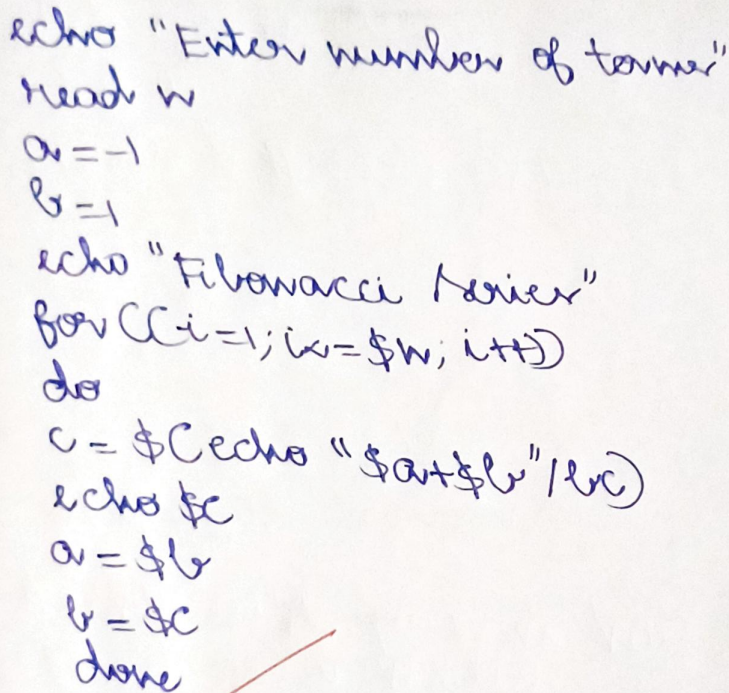 echo "Enter number of terms"
read n
a=-1
b=1
echo "Fibonacci Series"
for ((i=1; i<=$n; i++))
do
c = $(echo "$a+$b"|bc)
echo $c
a = $b
b = $c
done